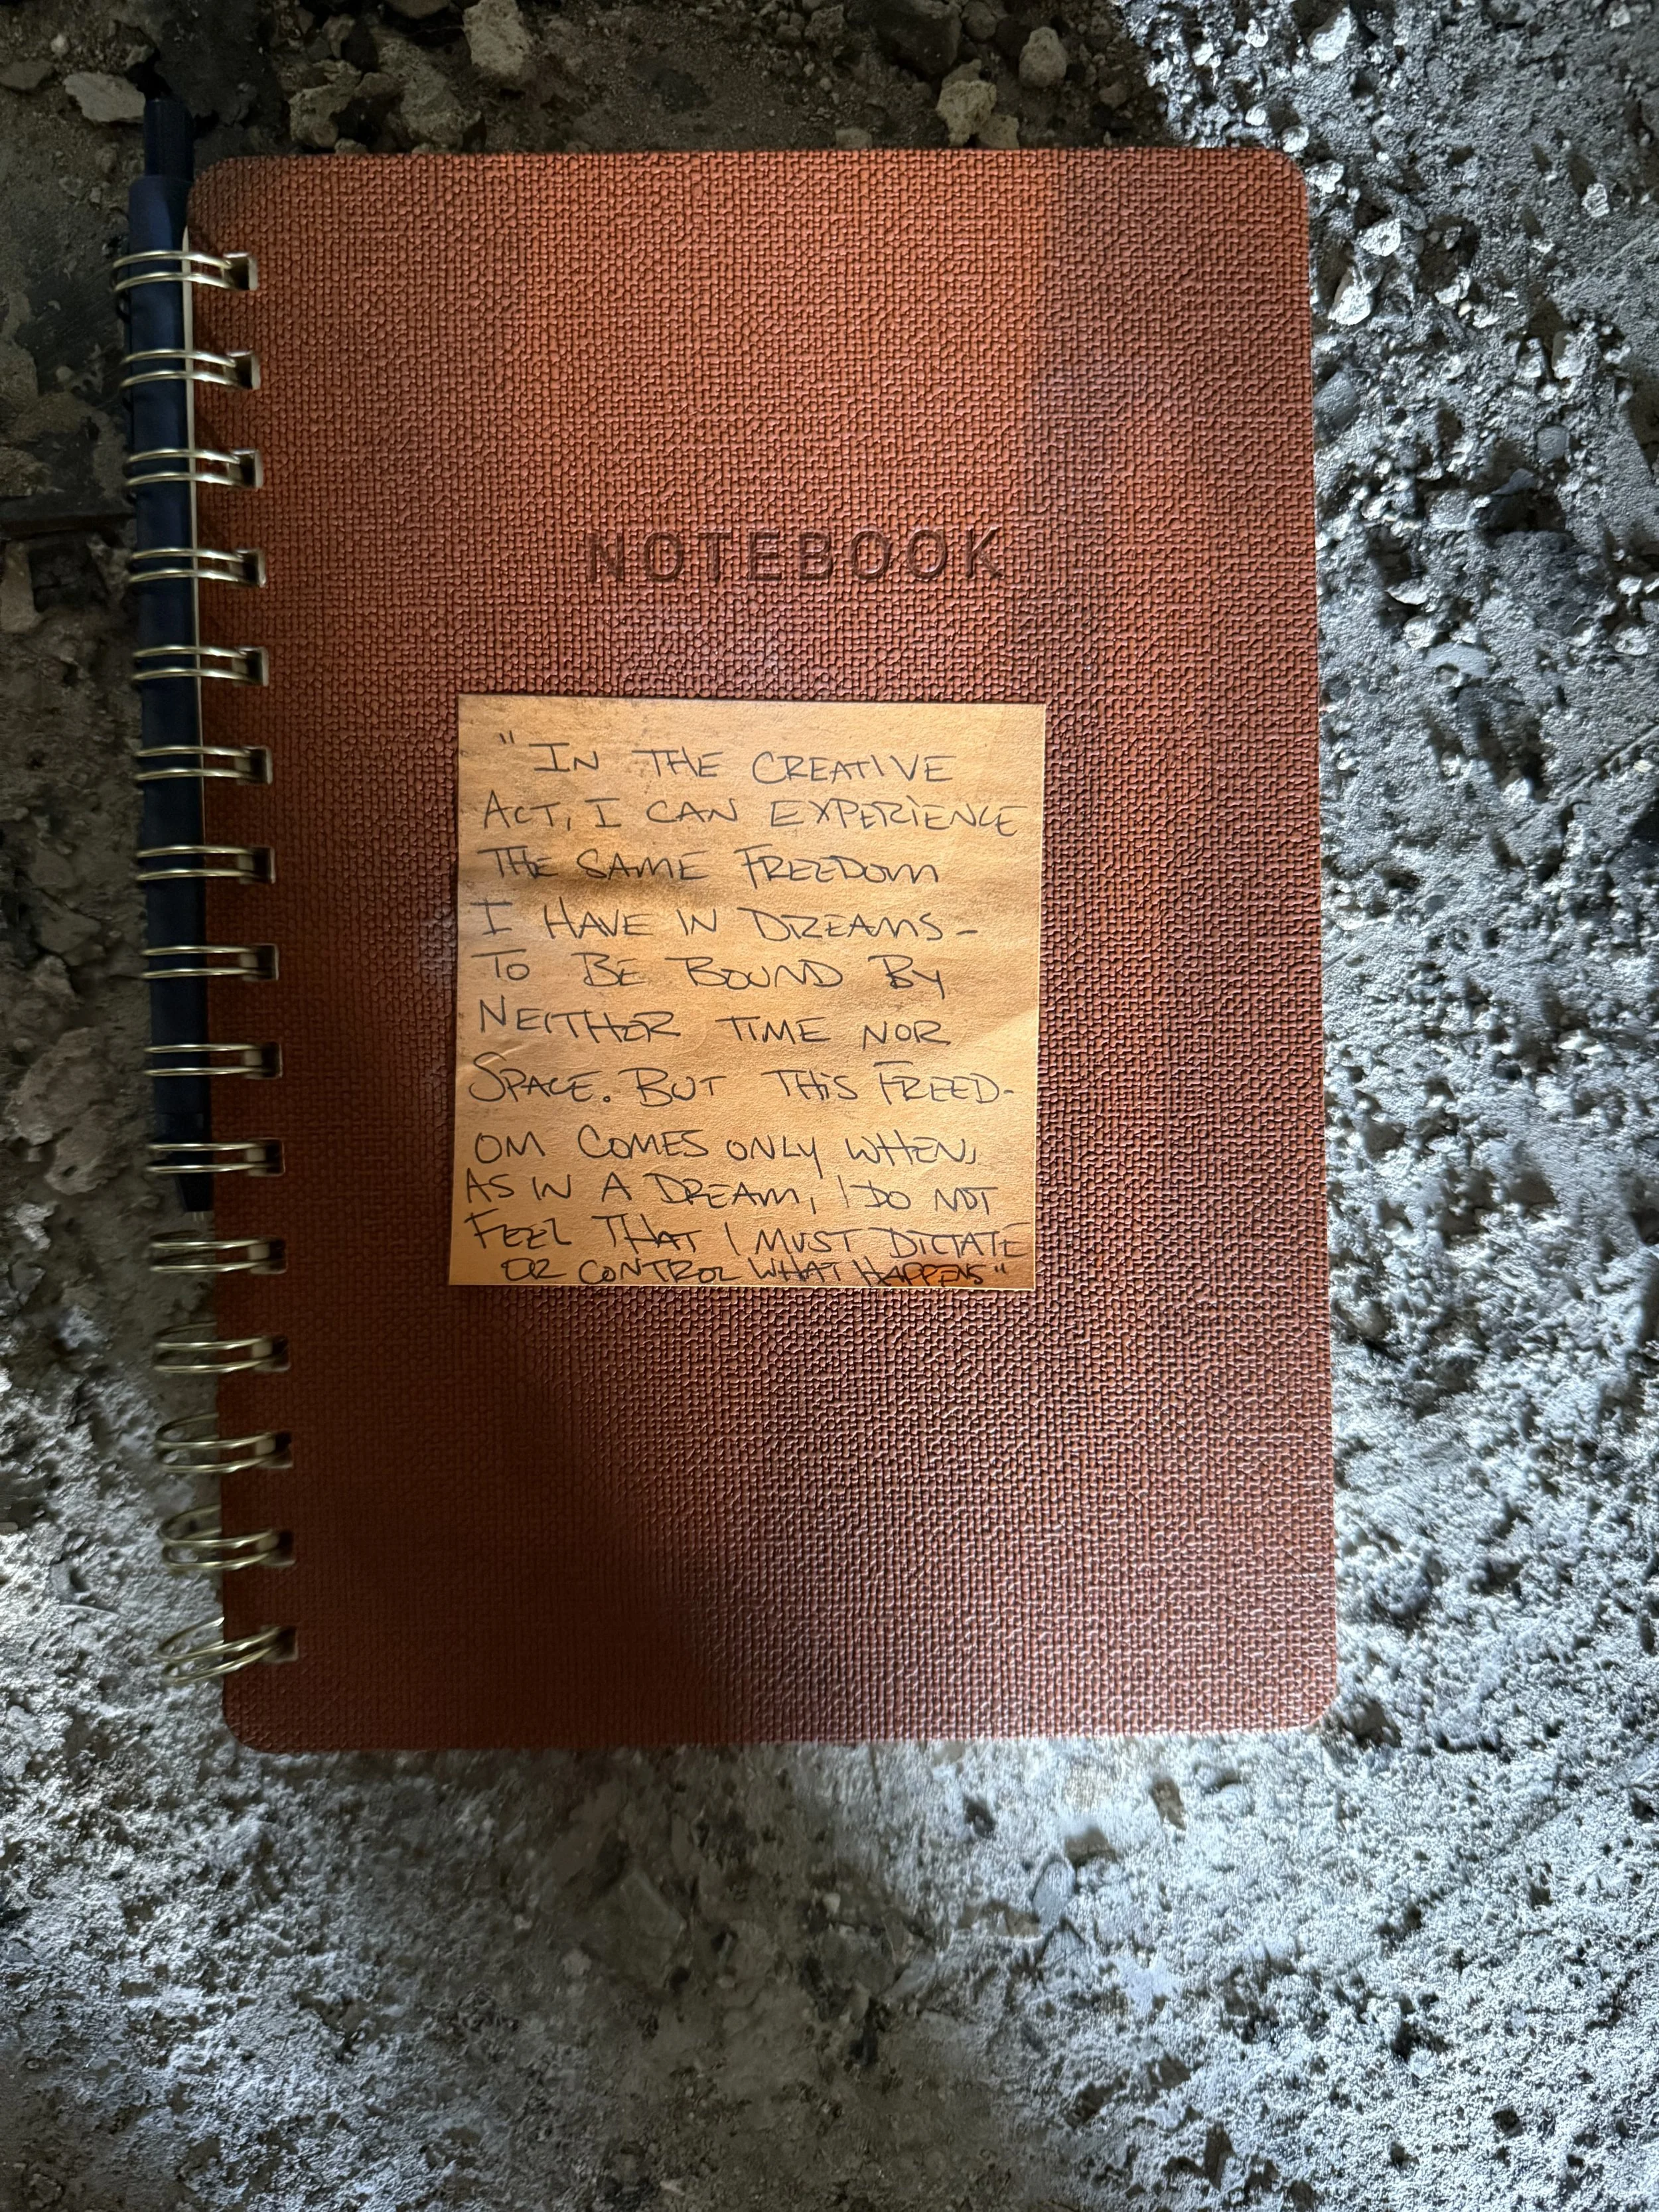 NOTEBOOK
"IN THE CREATIVE
ACT, I CAN EXPERIENCE
THE SAME FREEDOM
I HAVE IN DREAMS-
TO BE BOUND BY
NEITHER TIME NOR
SPACE. BUT THIS FREED-
OM COMES ONLY WHEN,
AS IN A DREAM, I DO NOT
FEEL THAT I MUST DICTATE
OR CONTROL WHAT HAPPENS"